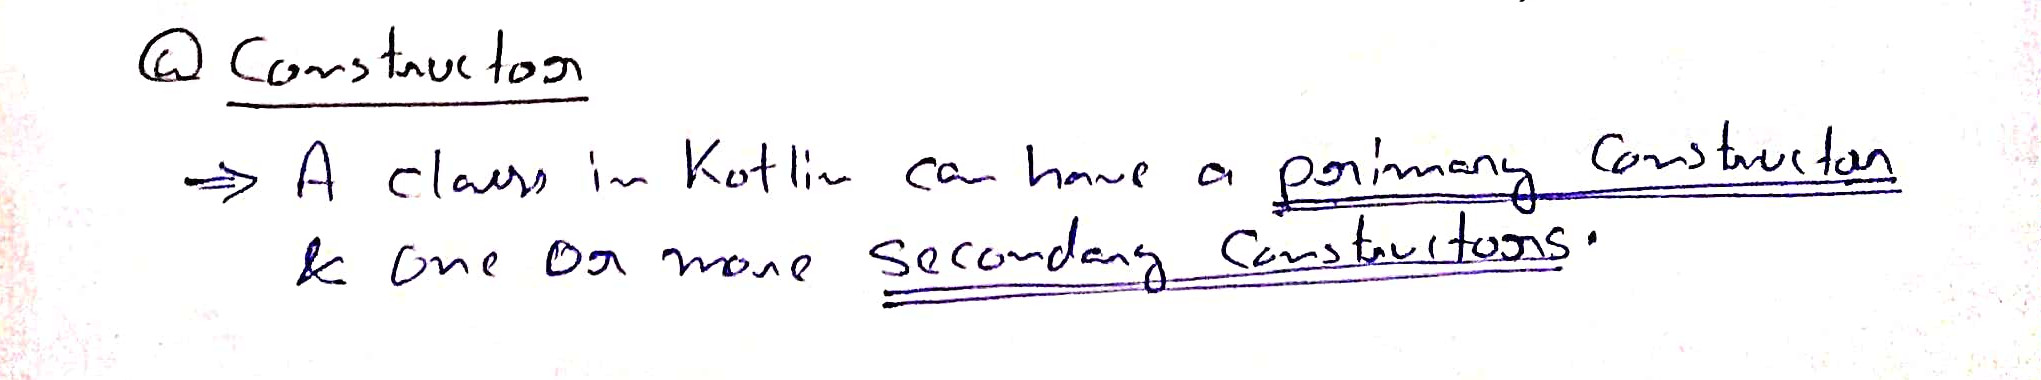 @ Constructor
⇒ A class in Kotlin can have a primary Constructor
& one or more Secondary Constructors.